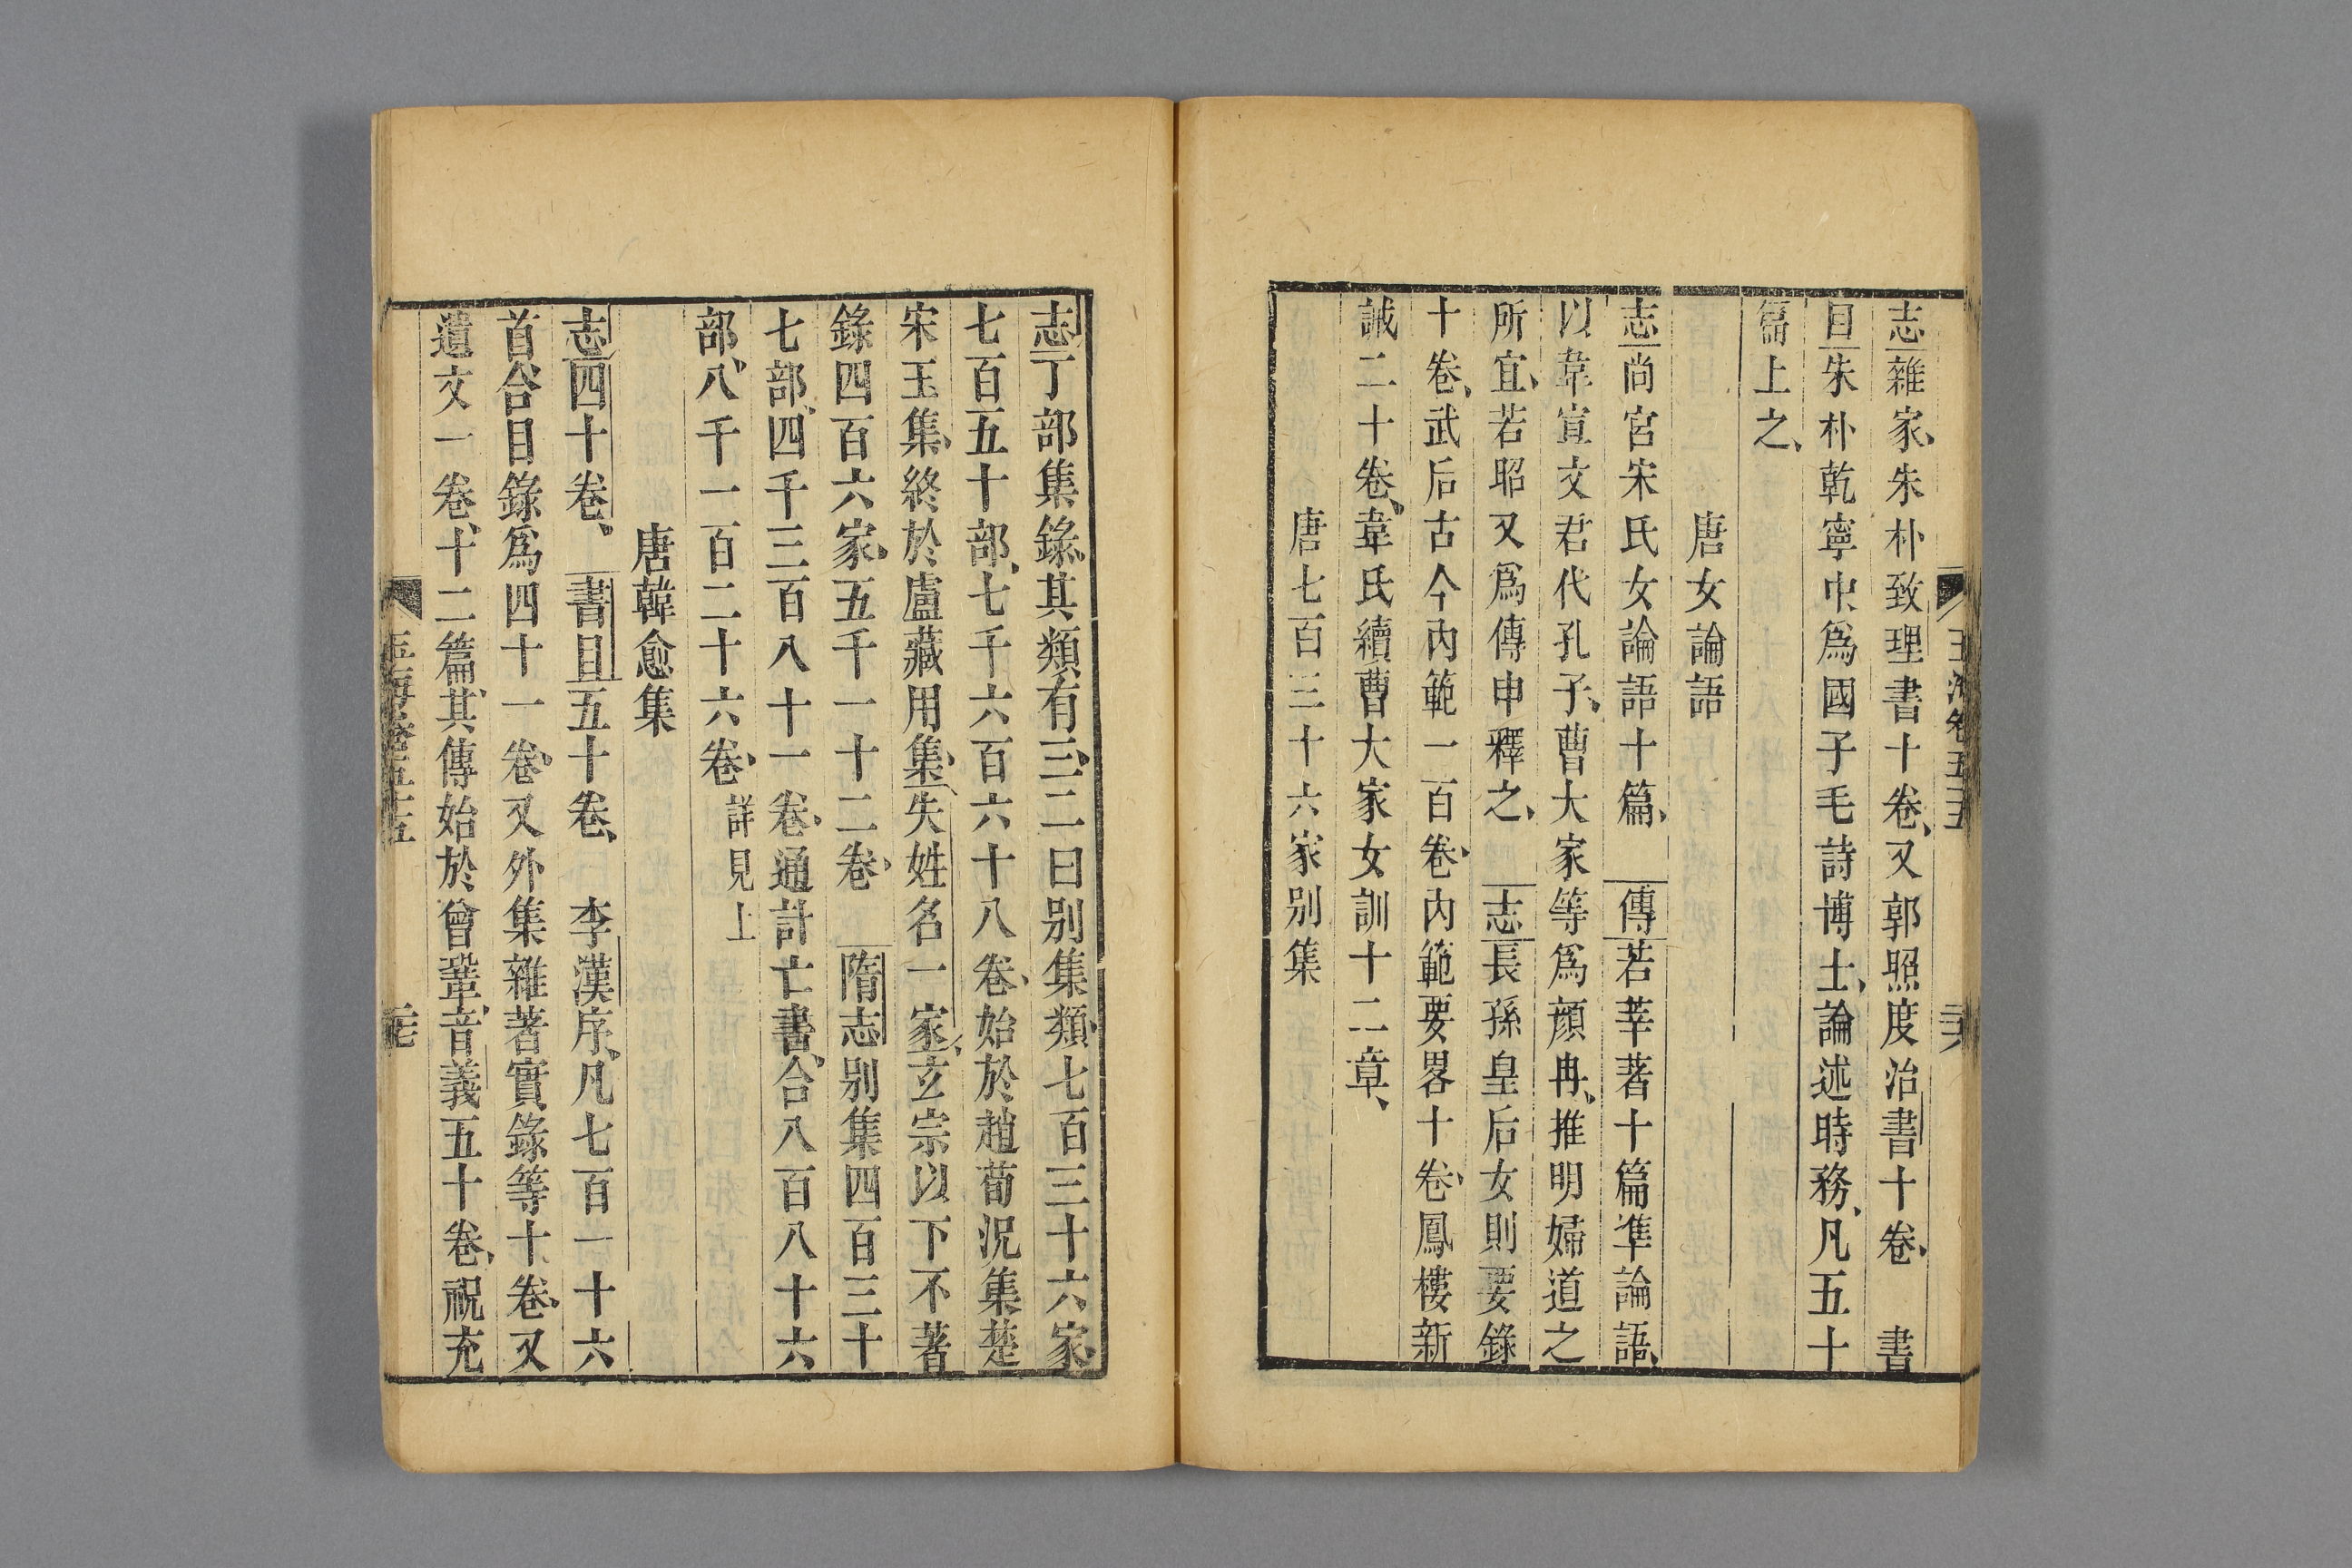 玉海卷五十五
志雜家朱朴致理書十卷又郭照度治書十卷 書
目朱朴乾寧中爲國子毛詩博士論述時務凡五十
篇上之
唐女論語
志尚宮宋氏女論語十篇 傳若莘著十篇準論語
以韋宣文君代孔子曹大家等爲顔冉推明婦道之
所宜若昭又爲傳申釋之 志長孫皇后女則要錄
十卷武后古今內範一百卷内範要畧十卷鳳樓新
誡二十卷韋氏續曹大家女訓十二章
唐七百三十六家别集
志丁部集錄其類有三二曰别集類七百三十六家
七百五十部七千六百六十八卷始於趙荀況集楚
宋玉集終於盧藏用集失姓名一家玄宗以下不著
錄四百六家五千一十二卷 隋志别集四百三十
七部四千三百八十一卷通計亡書合八百八十六
部八千一百二十六卷詳見上
唐韓愈集
志四十卷 書目五十卷 李漢序凡七百一十六
首合目錄爲四十一卷又外集雜著實錄等十卷又
遺文一卷十二篇其傳始於曾鞏音義五十卷祝充
玉海卷五十五